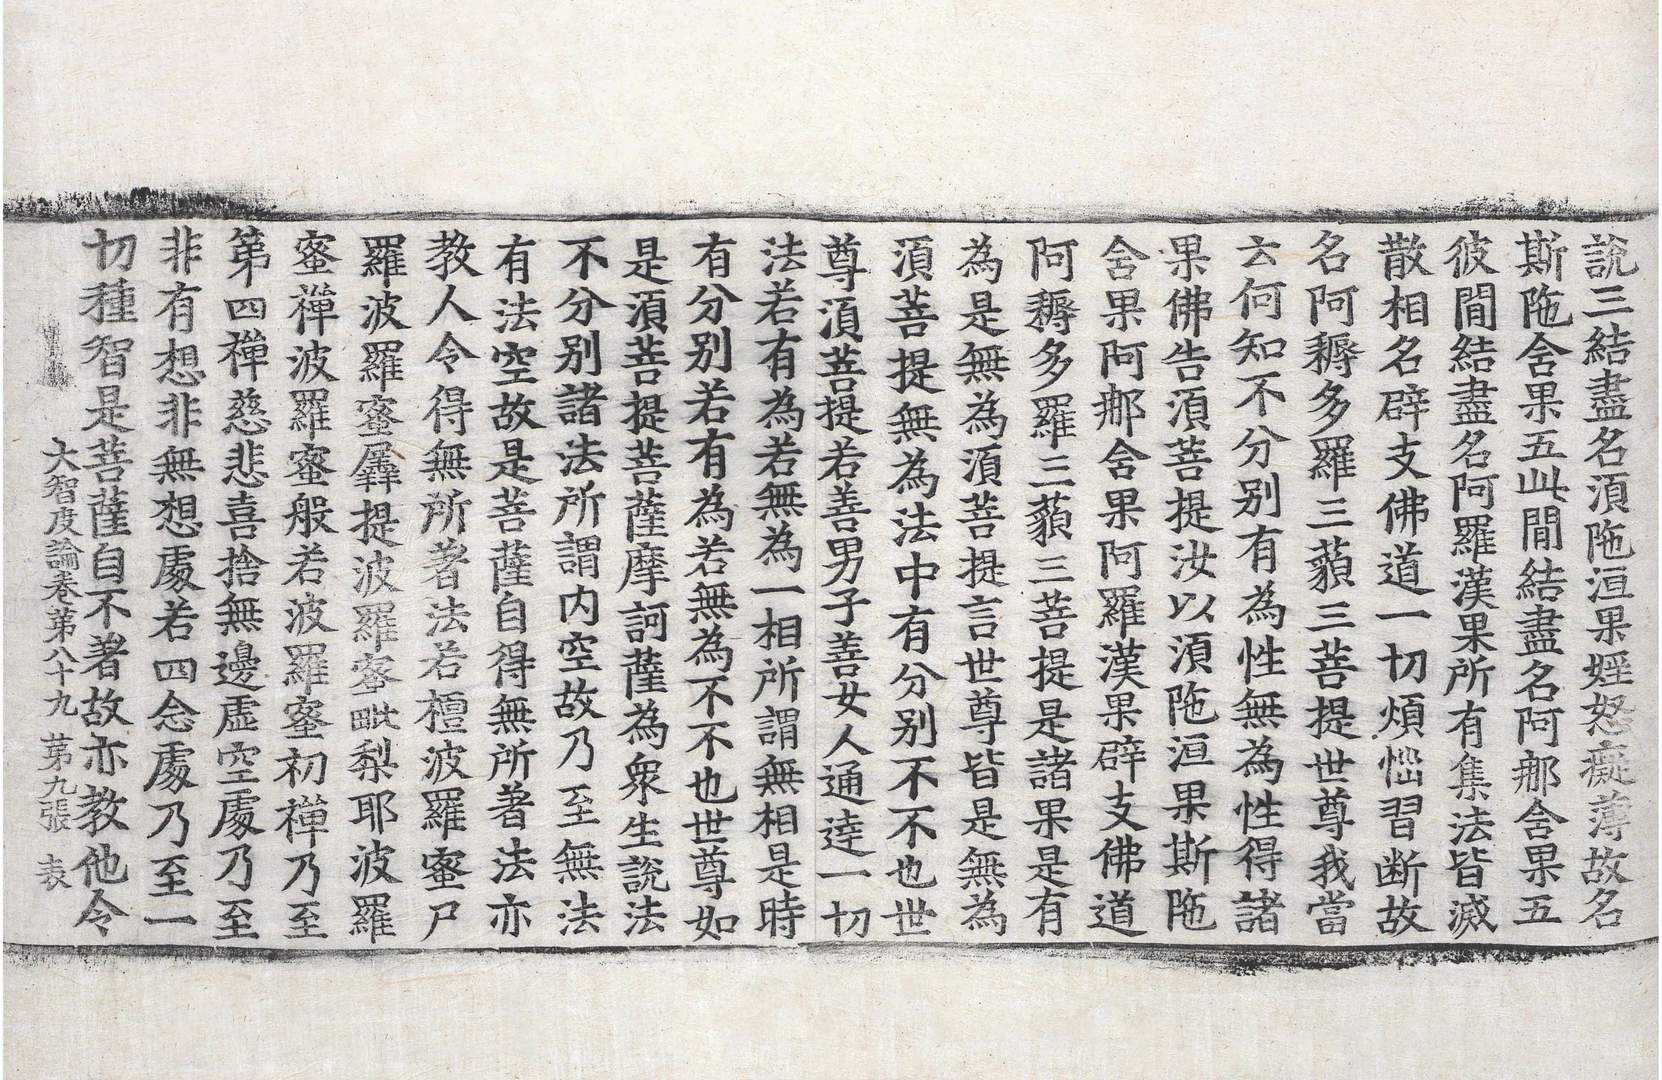 說三結盡名湏陁洹果婬怒癡薄故名
斯陁含果五此間結盡名阿那含果五
彼間結盡名阿羅漢果所有集法皆滅
散相名辟支佛道一切煩惱習断故
名阿耨多羅三藐三菩提世尊我當
云何知不分别有為性無為性得諸
果佛告湏菩提汝以湏陁洹果斯陁
含果阿那含果阿羅漢果辟支佛道
阿耨多羅三藐三菩提是諸果是有
為是無為湏菩提言世尊皆是無為
湏菩提無為法中有分别不不也世
尊湏菩提若善男子善女人通達一切
法若有為若無為一相所謂無相是時
有分别若有為若無為不不也世尊如
是湏菩提菩薩摩訶薩為衆生說法
不分别諸法所謂内空故乃至無法
有法空故是菩薩自得無所著法亦
教人令得無所著法若檀波羅蜜尸
羅波羅蜜羼提波羅蜜毗梨耶波羅
蜜禪波羅蜜般若波羅蜜初禪乃至
第四禪慈悲喜捨無邊虛空處乃至
非有想非無想處若四念處乃至一
切種智是菩薩自不著故亦教他令
大智度論卷第八十九 第九張 表